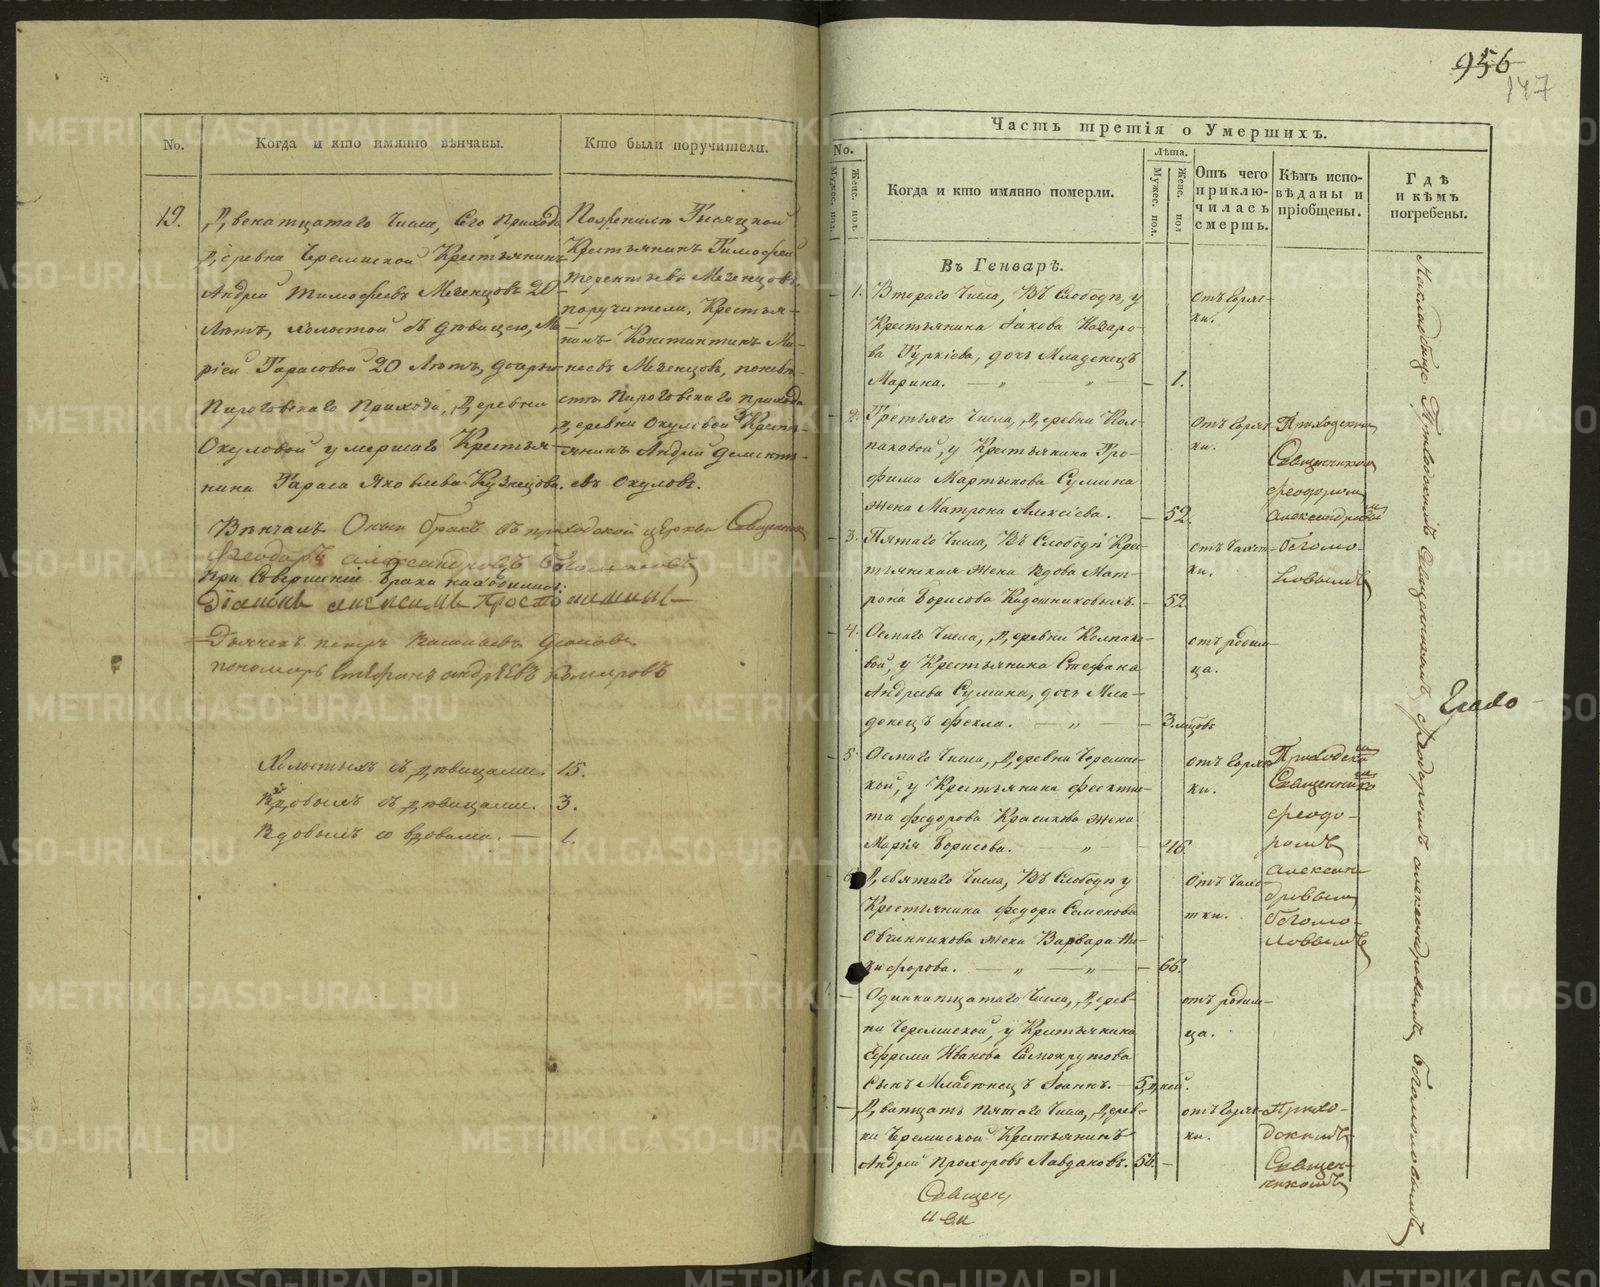 No.
Когда и кто имянно вѣнчаны.
Кто были поручители.
19.
Двенатцатаго Числа, Сего Прихода
Деревни Черемиской Крестьянинъ
Андрей Тимофеевъ Мезенцовъ 20
Лѣтъ, холостой съ девицею, Ма-
ріей Тарасовой 20 Лѣтъ, дочерью
Пироговскаго Прихода, Деревни
Окуловой умершаго Крестья-
нина Тараса Яковлева Кузнецова.
По женихѣ
Крестьянинъ Тимофей
Терентьевъ Мезенцовъ
поручители, Крестья-
нинъ Константинъ
Мезенцовъ, по невѣ-
стѣ Пироговскаго прихода
деревни Окуловой Кресть-
янинъ Андрей
евъ Окуловъ.
Вѣнчалъ Оный бракъ въ приходской церкви Священникъ
Феодоръ александровъ Богомоловъ
При Совершеніи Брака находились:
Діаконъ алексей
Дьячекъ петръ Васильевъ
пономарь Стефанъ андреевъ Комаровъ
Холостыхъ съ девицами. 15.
Вдовыхъ съ девицами. 3.
Вдовыхъ со вдовами. — 1.
956
147
Часть третія о Умершихъ.
No.
Мужес. пол.
Женс. пол.
Когда и кто имянно померли.
Лѣта.
Мужес. пол.
Женс. пол
Отъ чего
приклю-
чилась
смерть.
Кѣмъ испо-
вѣданы и
пріобщены.
Гдѣ
и кѣмъ
погребены.
Въ Генварѣ.
1. Втораго Числа, Въ Слободѣ, у
Крестьянина Іакова Назаро-
ва Гуркіева, дочь Младенецъ
Марина. — „ — „ — 1.
отъ Горяч-
ки.
2. Третьяго Числа, Деревни Кол-
паковой, у Крестьянина Тро-
фима Мартынова Сумина
жена Матрона Алексіева. — 52.
отъ Горяч-
ки.
Приходским
Священником
Феодором
александровым
Богомо-
ловымъ
3. Пятаго Числа, Въ Слободѣ Крес-
тьянская Жена Вдова Мат-
рона Борисова — 52.
отъ Чахот-
ки.
4. Осмаго Числа, Деревни Колпако-
вой, у Крестьянина Стефана
Андреева Сумина, дочь Мла-
денецъ Фекла. — „ — 3. мѣсцовъ
отъ родим-
ца.
5. Осмаго Числа, Деревни Черемис-
кой, у Крестьянина Феокти-
та Федорова Красикова жена
Марія Борисова. — „ — 46.
отъ Горяч-
ки.
Приходским
Священником
Феодо-
ромъ
александ-
ровым
Богомо-
ловымъ
6. Девятаго Числа, Въ Слободѣ у
Крестьянина Федора Семенова
Овчинникова жена Варвара Ни-
кифорова. — „ — „ — 66.
отъ Чахо-
тки.
— Одинатцатаго Числа, Дерев-
ни Черемиской, у Крестьянина
Ефрема Иванова Самокрутова
Сынъ Младенецъ Іоаннъ. — 5. дней.
отъ родим-
ца.
— Двадцать пятаго Числа, Дерев-
ни Черемиской Крестьянинъ
Андрей Прохоровъ Лавдановъ. 56. —
отъ Горяч-
ки.
Прихо-
дскимъ
Священ-
никомъ
На кладбище Приходскимъ Священникомъ Феодоромъ александровымъ Богомоловымъ
Священ
METRIKI.GASO-URAL.RU